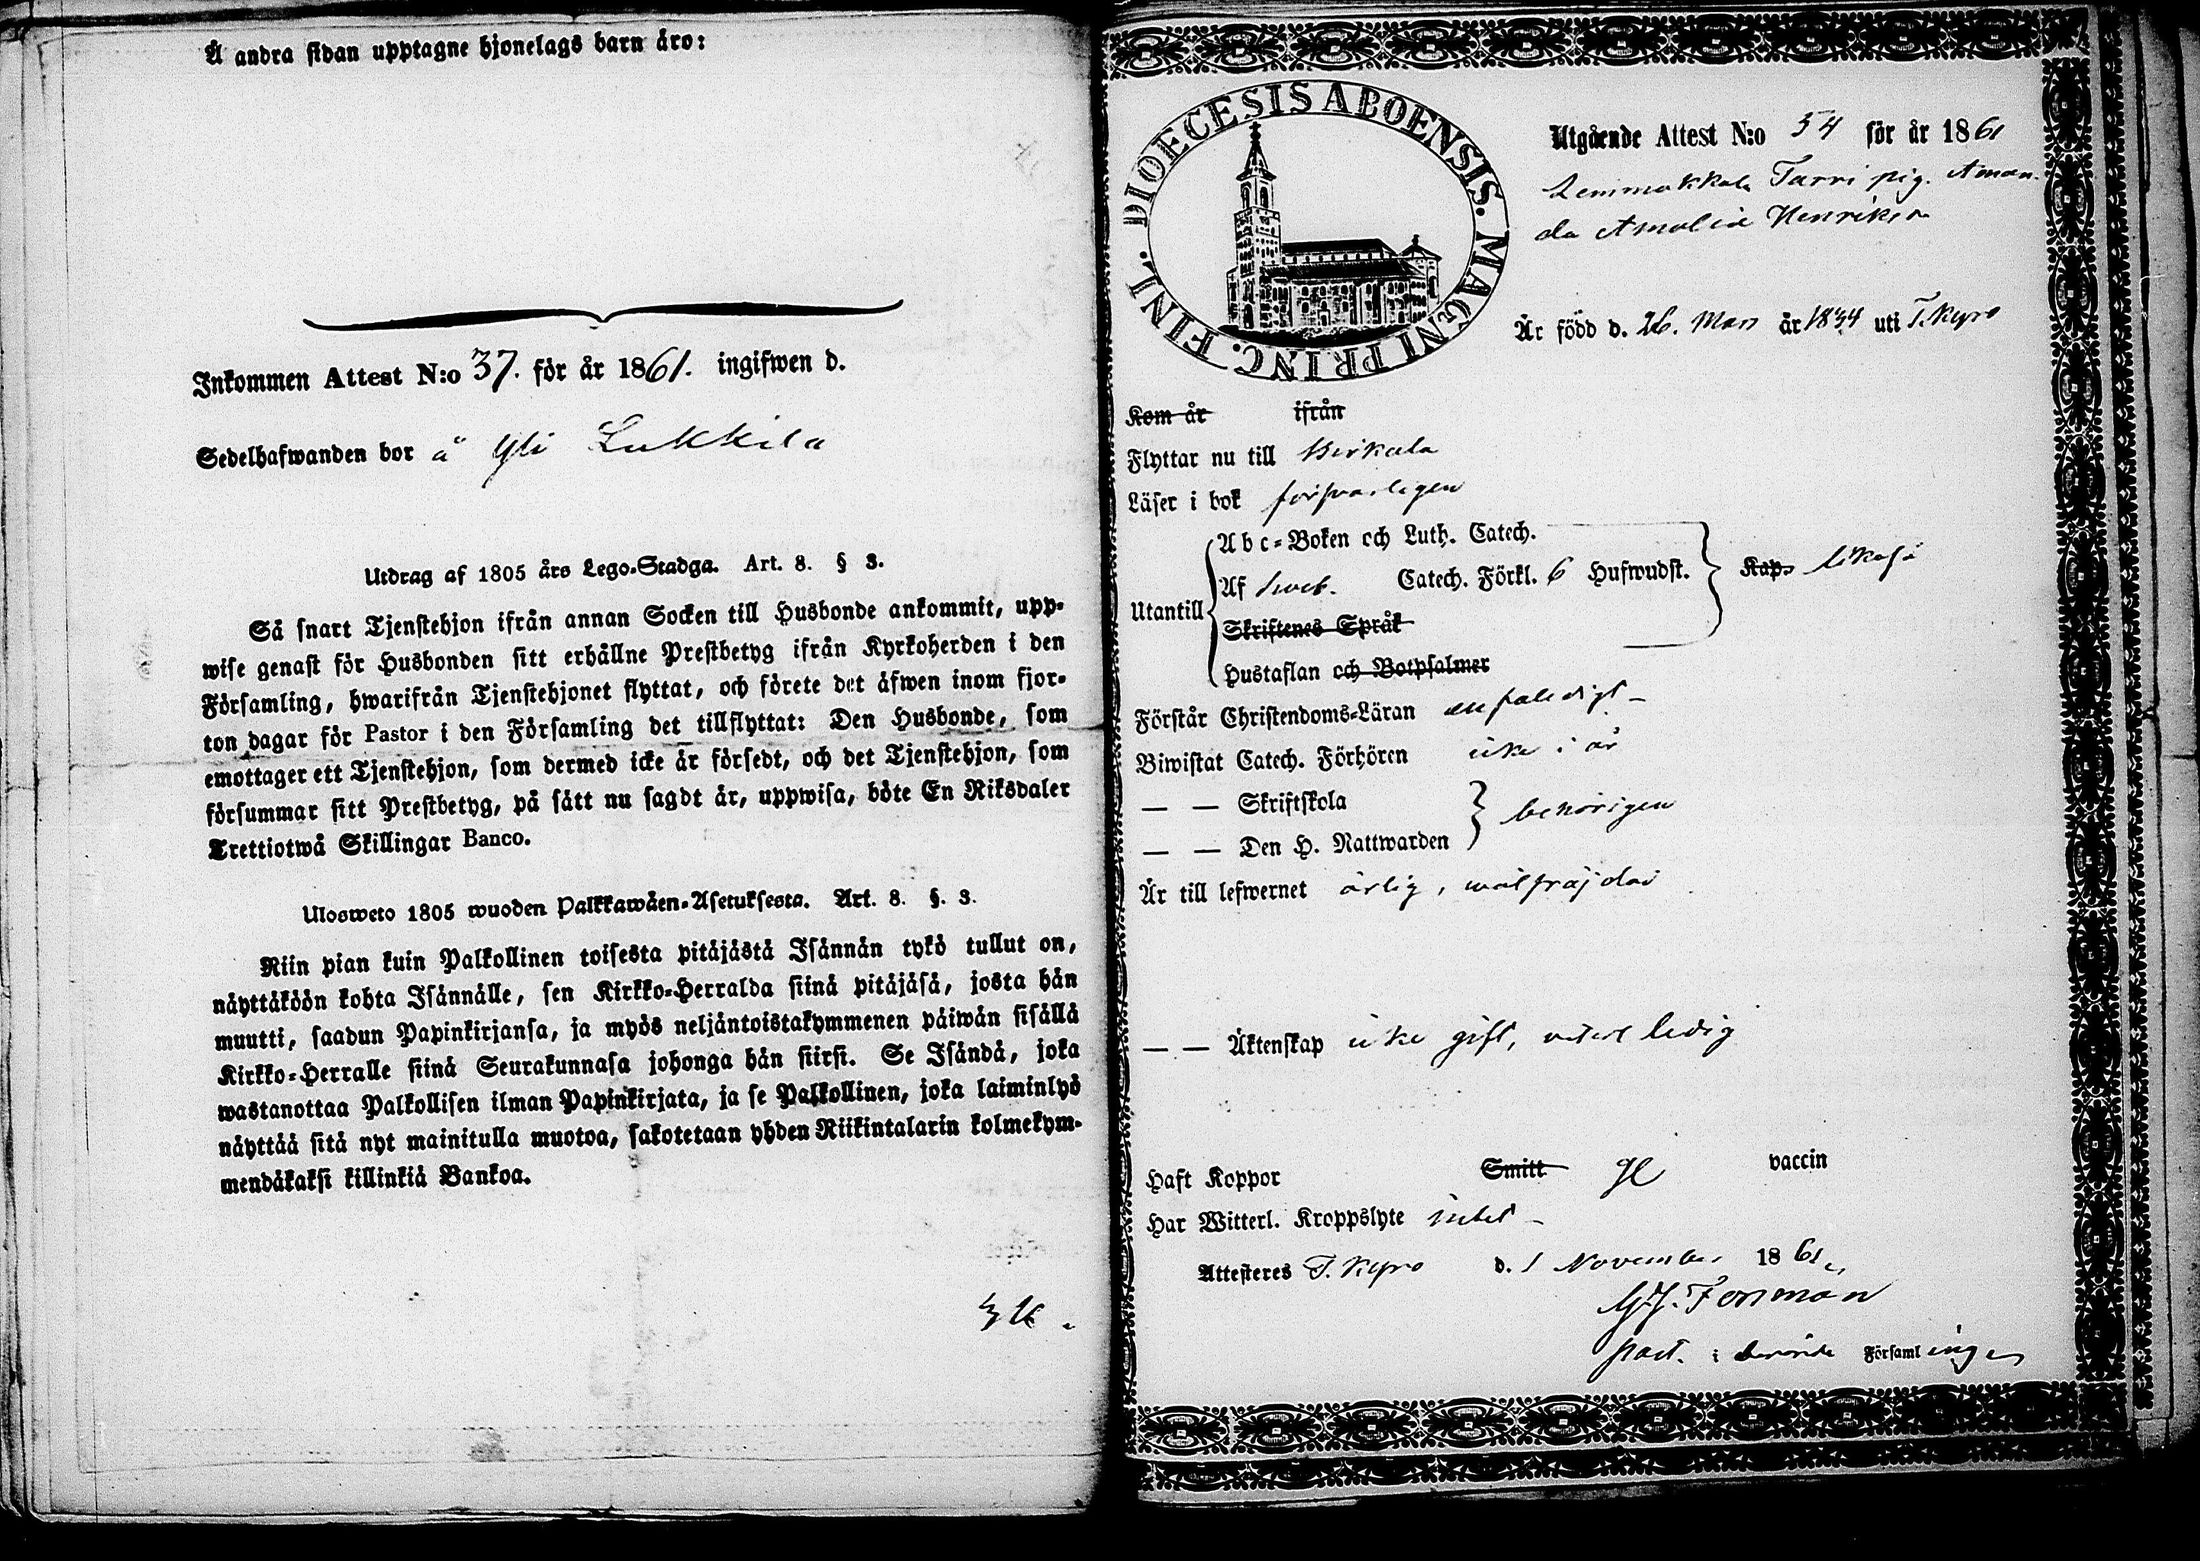 Å andra sidan upptagne hjonelags barn äro:
Inkommen Attest N:o 37. för år 1861. ingifwen d.
Sedelhafwanden bor å Yli Lukkila
Utdrag af 1805 års Lego-Stadga. Art. 8. § 3.
Så snart Tjenstehjon ifrån annan Socken till Husbonde ankommit, upp-
wise genast för Husbonden sitt erhållne Prestbetyg ifrån Kyrkoherden i den
Församling, hwarifrån Tjenstehjonet flyttat, och förete det äfwen inom fjor-
ton dagar för Pastor i den Församling det tillflyttat: Den Husbonde, som
emottager ett Tjenstehjon, som dermed icke är försedt, och det Tjenstehjon, som
försummar sitt Prestbetyg, på sätt nu sagdt är, uppwisa, böte En Riksdaler
Trettiotwå Skillingar Banco.
Ulosweto 1805 wuoden Palkkawäen-Asetuksesta. Art. 8. §. 3.
Niin pian kuin Palkollinen toisesta pitäjästä Isännän tykö tullut on,
näyttäköön kohta Isännälle, sen Kirkko-Herralda siinä pitäjäsä, josta hän
muutti, saadun Papinkirjansa, ja myös neljäntoistakymmenen päiwän sisällä
Kirkko-Herralle siinä Seurakunnasa johonga hän siirsi. Se Isändä, joka
wastanottaa Palkollisen ilman Papinkirjata, ja se Palkollinen, joka laiminlyö
näyttää sitä nyt mainitulla muotoa, sakotetaan yhden Riikintalarin kolmekym-
mendäkaksi killinkiä Bankoa.
DIOECESIS ABOENSIS. MAGNI PRINC. FINL.
Utgående Attest N:o 54 för år 1861
Lemmakkala Tarri pig. Aman-
da Amalia Henriksd
Är född d. 26. Mars år 1834 uti T.kyro
Kom år ifrån
Flyttar nu till Birkala
Läser i bok försvarligen
Abc-Boken och Luth. Catech.
Utantill Af Sveb. Catech. Förkl. 6 Hufwudst. Kap. likaså
Skriftenes Språk
Hustaflan och Botpsalmer
Förstår Christendoms-Läran enfaldigt -
Biwistat Catech. Förhören icke i år
— — Skriftskola
— — Den H. Nattwarden behörigen
Är till lefwernet ärlig, välfräjdad
— — Äktenskap icke gift, vetert. ledig
Haft Koppor Smitt vaccin
Har Witterl. Kroppslyte intet -
Attesteres T.kyro d. 1 November 1861.
Forsman
past. i berörde Församlingen